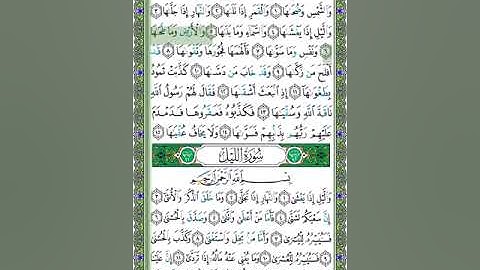 وَالشَّمْسِ وَضُحَاهَا ۝١ وَالْقَمَرِ إِذَا تَلَاهَا ۝٢ وَالنَّهَارِ إِذَا جَلَّاهَا ۝٣
وَاللَّيْلِ إِذَا يَغْشَاهَا ۝٤ وَالسَّمَاءِ وَمَا بَنَاهَا ۝٥ وَالْأَرْضِ وَمَا طَحَاهَا
۝٦ وَنَفْسٍ وَمَا سَوَّاهَا ۝٧ فَأَلْهَمَهَا فُجُورَهَا وَتَقْوَاهَا ۝٨ قَدْ
أَفْلَحَ مَن زَكَّاهَا ۝٩ وَقَدْ خَابَ مَن دَسَّاهَا ۝١٠ كَذَّبَتْ ثَمُودُ
بِطَغْوَاهَا ۝١١ إِذِ انبَعَثَ أَشْقَاهَا ۝١٢ فَقَالَ لَهُمْ رَسُولُ اللَّهِ
نَاقَةَ اللَّهِ وَسُقْيَاهَا ۝١٣ فَكَذَّبُوهُ فَعَقَرُوهَا فَدَمْدَمَ
عَلَيْهِمْ رَبُّهُم بِذَنبِهِمْ فَسَوَّاهَا ۝١٤ وَلَا يَخَافُ عُقْبَاهَا ۝١٥
سُورَةُ اللَّيْلِ
بِسْمِ اللَّهِ الرَّحْمَٰنِ الرَّحِيمِ
وَاللَّيْلِ إِذَا يَغْشَىٰ ۝١ وَالنَّهَارِ إِذَا تَجَلَّىٰ ۝٢ وَمَا خَلَقَ الذَّكَرَ وَالْأُنثَىٰ ۝٣
إِنَّ سَعْيَكُمْ لَشَتَّىٰ ۝٤ فَأَمَّا مَنْ أَعْطَىٰ وَاتَّقَىٰ ۝٥ وَصَدَّقَ بِالْحُسْنَىٰ ۝٦
فَسَنُيَسِّرُهُ لِلْيُسْرَىٰ ۝٧ وَأَمَّا مَن بَخِلَ وَاسْتَغْنَىٰ ۝٨ وَكَذَّبَ بِالْحُسْنَىٰ ۝٩
فَسَنُيَسِّرُهُ لِلْعُسْرَىٰ ۝١٠ وَمَا يُغْنِي عَنْهُ مَالُهُ إِذَا تَرَدَّىٰ ۝١١ إِنَّ عَلَيْنَا